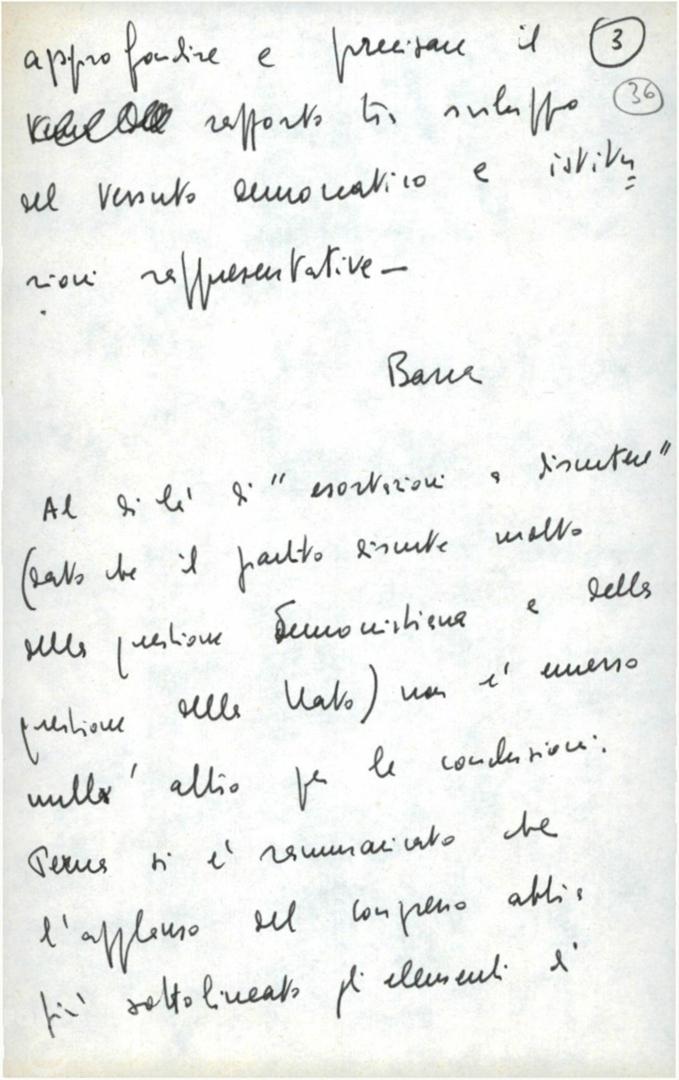 approfondire e precisare il 3
rapporto tra sviluppo 36
del tessuto democratico e istitu=
zioni rappresentative –
Barca
Al di là di "esortazioni a discutere"
(dato che il partito discute molto
della questione democristiana e della
questione della Nato) non è emerso
null' altro per le conclusioni.
Perna si è rammaricato che
l'applauso del congresso abbia
più sottolineato gli elementi d'